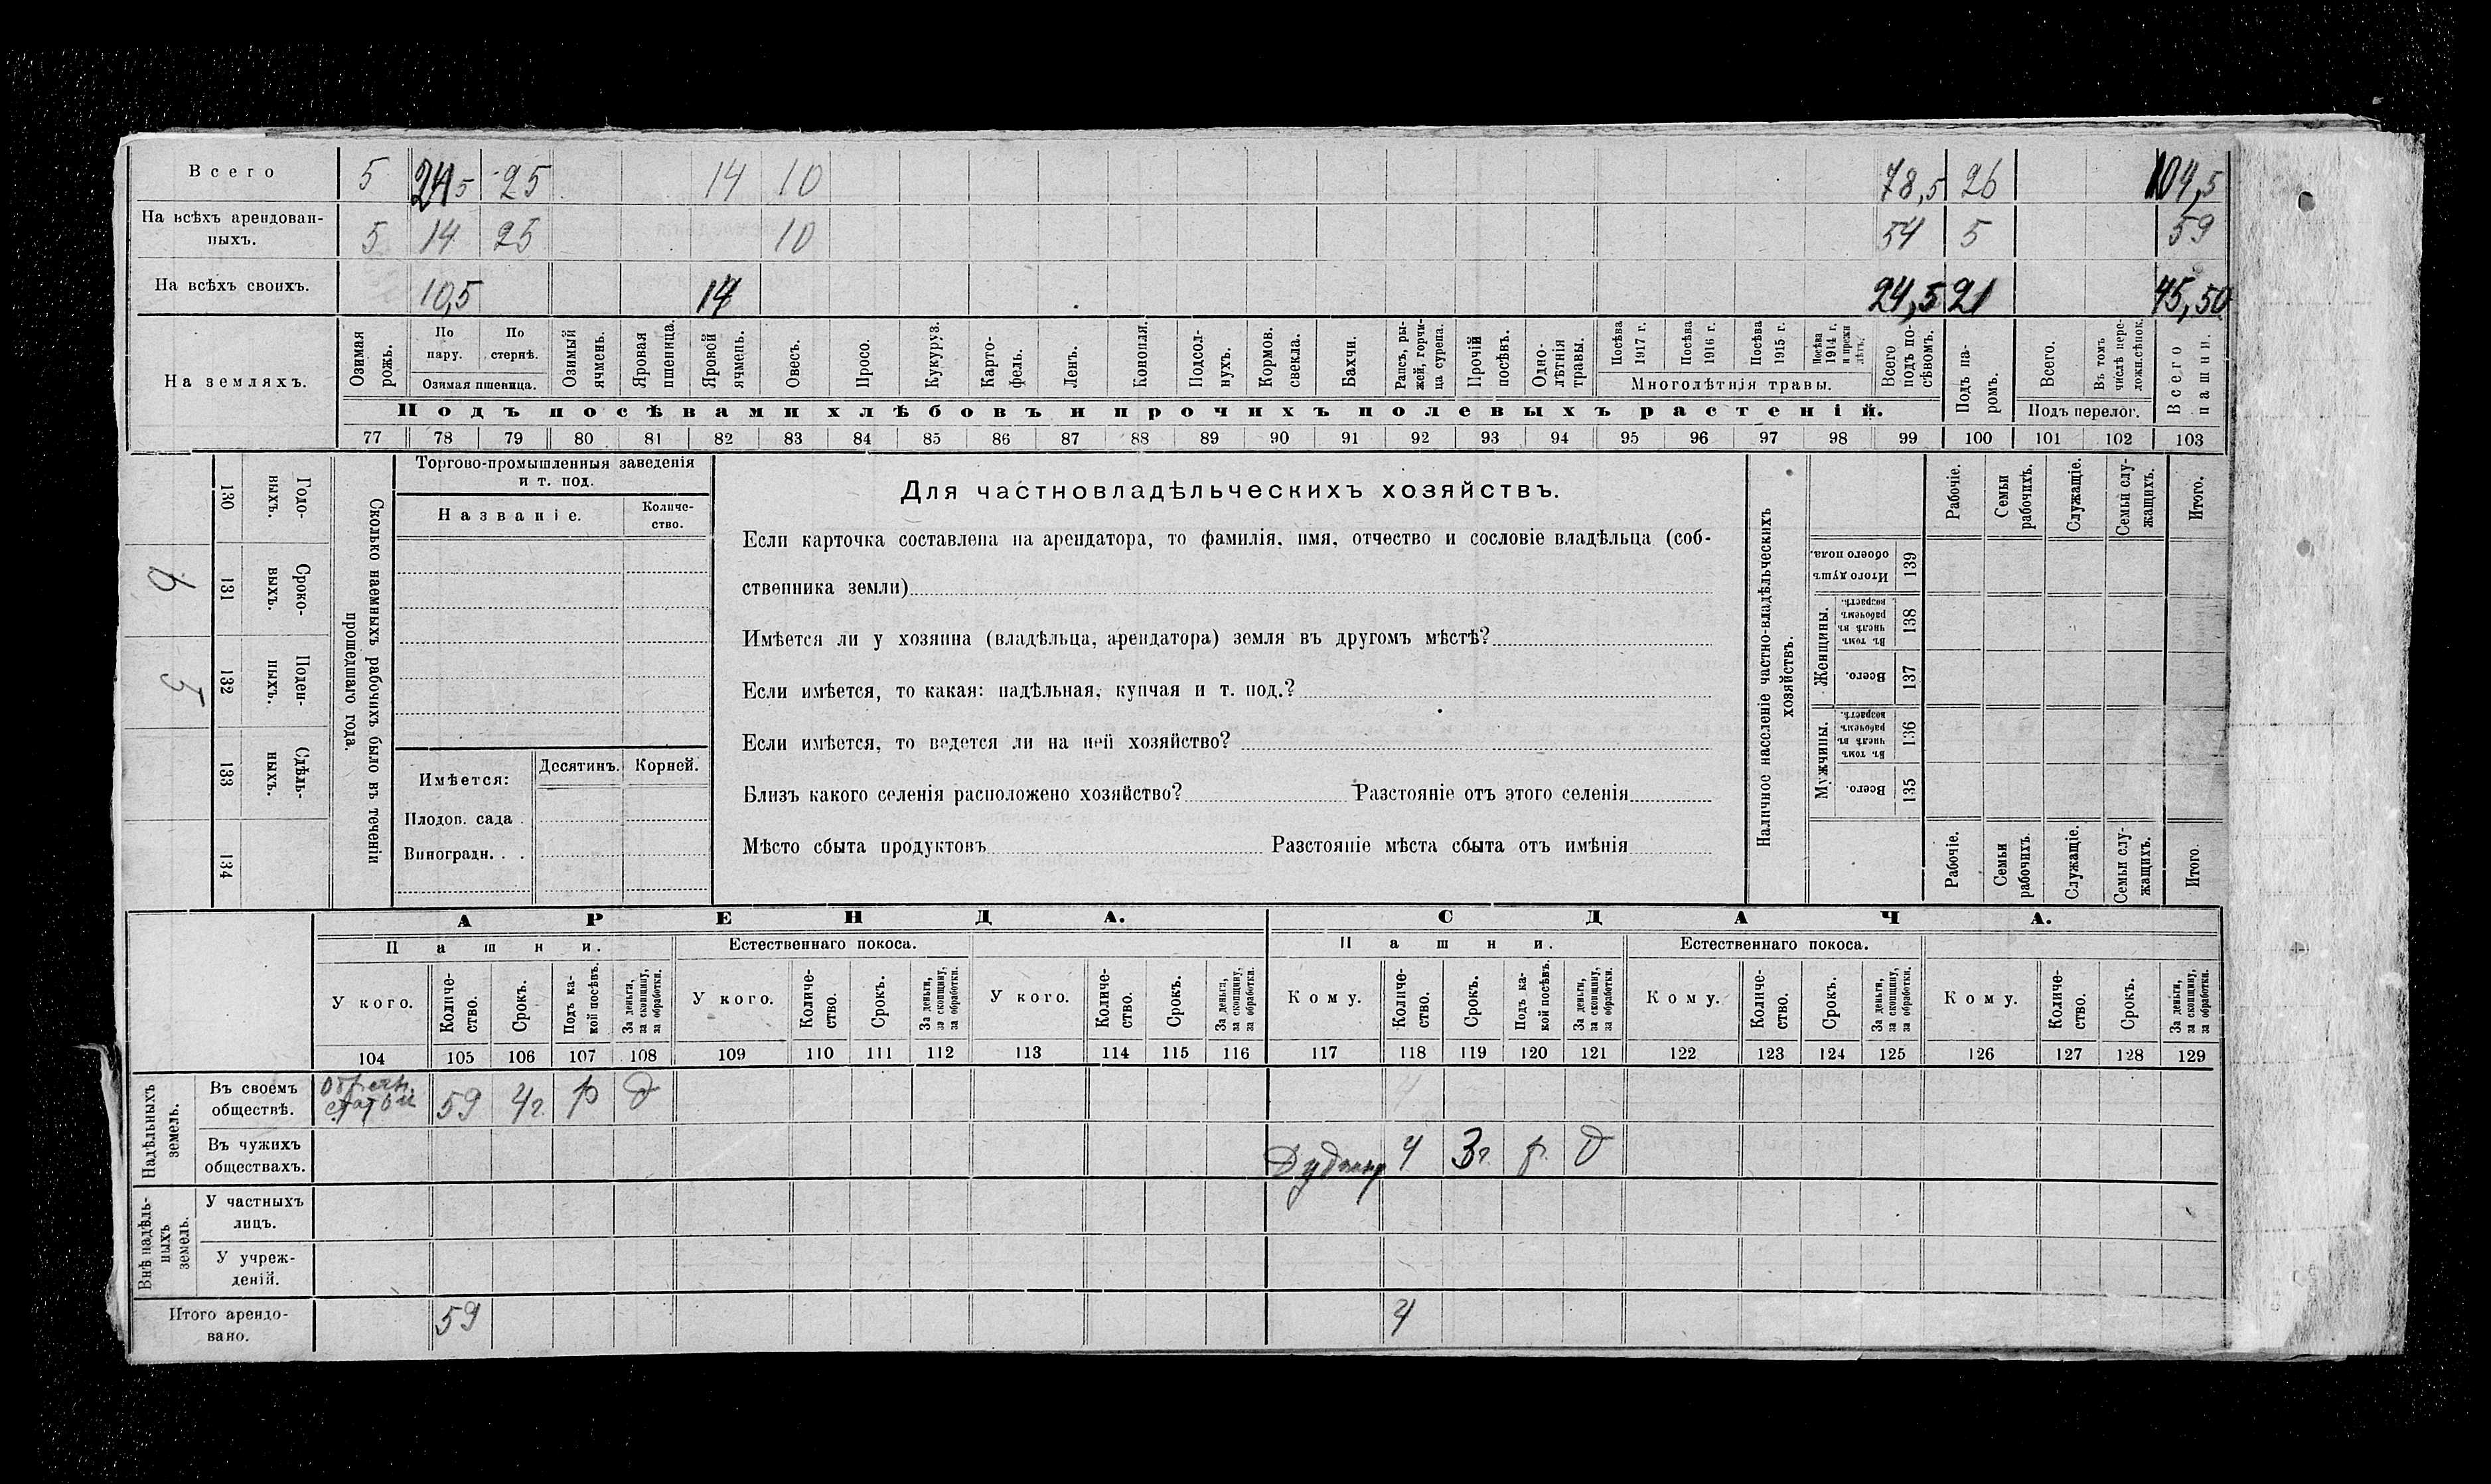 Всего 5 24,5 25 14 10 78,5 26 104,5
На всѣхъ арендован-
ныхъ. 5 14 25 10 54 5 59
На всѣхъ своихъ. 10,5 14 24,5 21 45,50
На земляхъ.
Озимая рожь.
По пару.
По стернѣ.
Озимая пшеница.
Озимый ячмень.
Яровая пшеница.
Яровой ячмень.
Овесъ.
Просо.
Кукуруз.
Карто-
фель.
Ленъ.
Конопля.
Подсол-
нухъ.
Кормов. свекла.
Бахчи.
Рапсъ, ры-
жей, горчи-
ца сурепа.
Прочій посѣвъ.
Одно-
лѣтнія травы.
Посѣва 1917 г.
Посѣва 1916 г.
Посѣва 1915 г.
Посѣва 1914 г. и прежн лѣтъ.
Многолѣтнія травы.
Всего подъ по-
сѣвомъ.
Подъ па-
ромъ.
Всего.
Въ томъ числѣ пере-
ложн.сѣнок.
Подъ перелог.
Всего пашни.
Подъ посѣвами хлѣбовъ и прочихъ полевыхъ растеній.
77 78 79 80 81 82 83 84 85 86 87 88 89 90 91 92 93 94 95 96 97 98 99 100 101 102 103
Сколько наемныхъ рабочихъ было въ теченіи
прошедшаго года.
Годо-
выхъ.
130
Сроко-
выхъ.
131
6
Поден-
ныхъ.
132
5
Сдѣль-
ныхъ.
133
134
Торгово-промышленныя заведенія
и т. под.
Названіе.
Количе-
ство.
Имѣется:
Десятинъ.
Корней.
Плодов. сада .
Виноградн. . .
Для частновладѣльческихъ хозяйствъ.
Если карточка составлена на арендатора, то фамилія, имя, отчество и сословіе владѣльца (соб-
ственника земли)
Имѣется ли у хозяина (владѣльца, арендатора) земля въ другомъ мѣстѣ?
Если имѣется, то какая: надѣльная, купчая и т. под.?
Если имѣется, то ведется ли на ней хозяйство?
Близъ какого селенія расположено хозяйство? Разстояніе отъ этого селенія
Мѣсто сбыта продуктовъ Разстояніе мѣста сбыта отъ имѣнія
Наличное населеніе частно-владѣльческихъ
хозяйствъ.
Рабочіе.
Семьи рабочихъ.
Служащіе.
Семьи слу-
жащихъ.
Итого.
Итого душъ обоего пола. 139
Женщины.
Въ томъ числѣ въ рабочемъ возрастѣ. 138
Всего. 137
Мужчины.
Въ томъ числѣ въ рабочемъ возрастѣ. 136
Всего. 135
Рабочіе.
Семьи рабочихъ.
Служащіе.
Семьи слу-
жащихъ.
Итого.
АРЕНДА.
СДАЧА.
Пашни.
Естественнаго покоса.
Пашни.
Естественнаго покоса.
У кого.
Количе-
ство.
Срокъ.
Подъ ка-
кой посѣвъ.
За деньги, за скопщину, за обработки.
У кого.
Количе-
ство.
Срокъ.
За деньги, за скопщину, за обработки.
У кого.
Количе-
ство.
Срокъ.
За деньги, за скопщину, за обработки.
Кому.
Количе-
ство.
Срокъ.
Подъ ка-
кой посѣвъ.
За деньги, за скопщину, за обработки.
Кому.
Количе-
ство.
Срокъ.
За деньги, за скопщину, за обработки.
Кому.
Количе-
ство.
Срокъ.
За деньги, за скопщину, за обработки.
104 105 106 107 108 109 110 111 112 113 114 115 116 117 118 119 120 121 122 123 124 125 126 127 128 129
Надѣльныхъ земель.
Въ своемъ
обществѣ. статьи 59 4г. р д
Въ чужихъ
обществахъ. 4 3г. р. д
Внѣ надѣль-
ныхъ земель.
У частныхъ
лицъ.
У учреж-
деній.
Итого арендо-
вано. 59 4